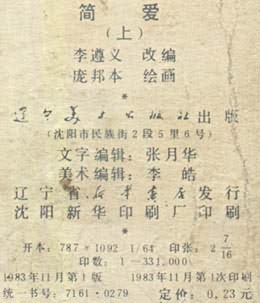 简爱
（上）
李遵义 改编
庞邦本 绘画
*
辽宁美术出版社出版
（沈阳市民族街2段5里6号）
文字编辑：张月华
美术编辑：李皓
辽宁省新华书店发行
沈阳新华印刷厂印刷
*
开本：787×1092 1/64 印张：2 7/16
印数：1—331,000
1983年11月第1版 1983年11月第1次印刷
统一书号：7161·0279 定价：0.23元